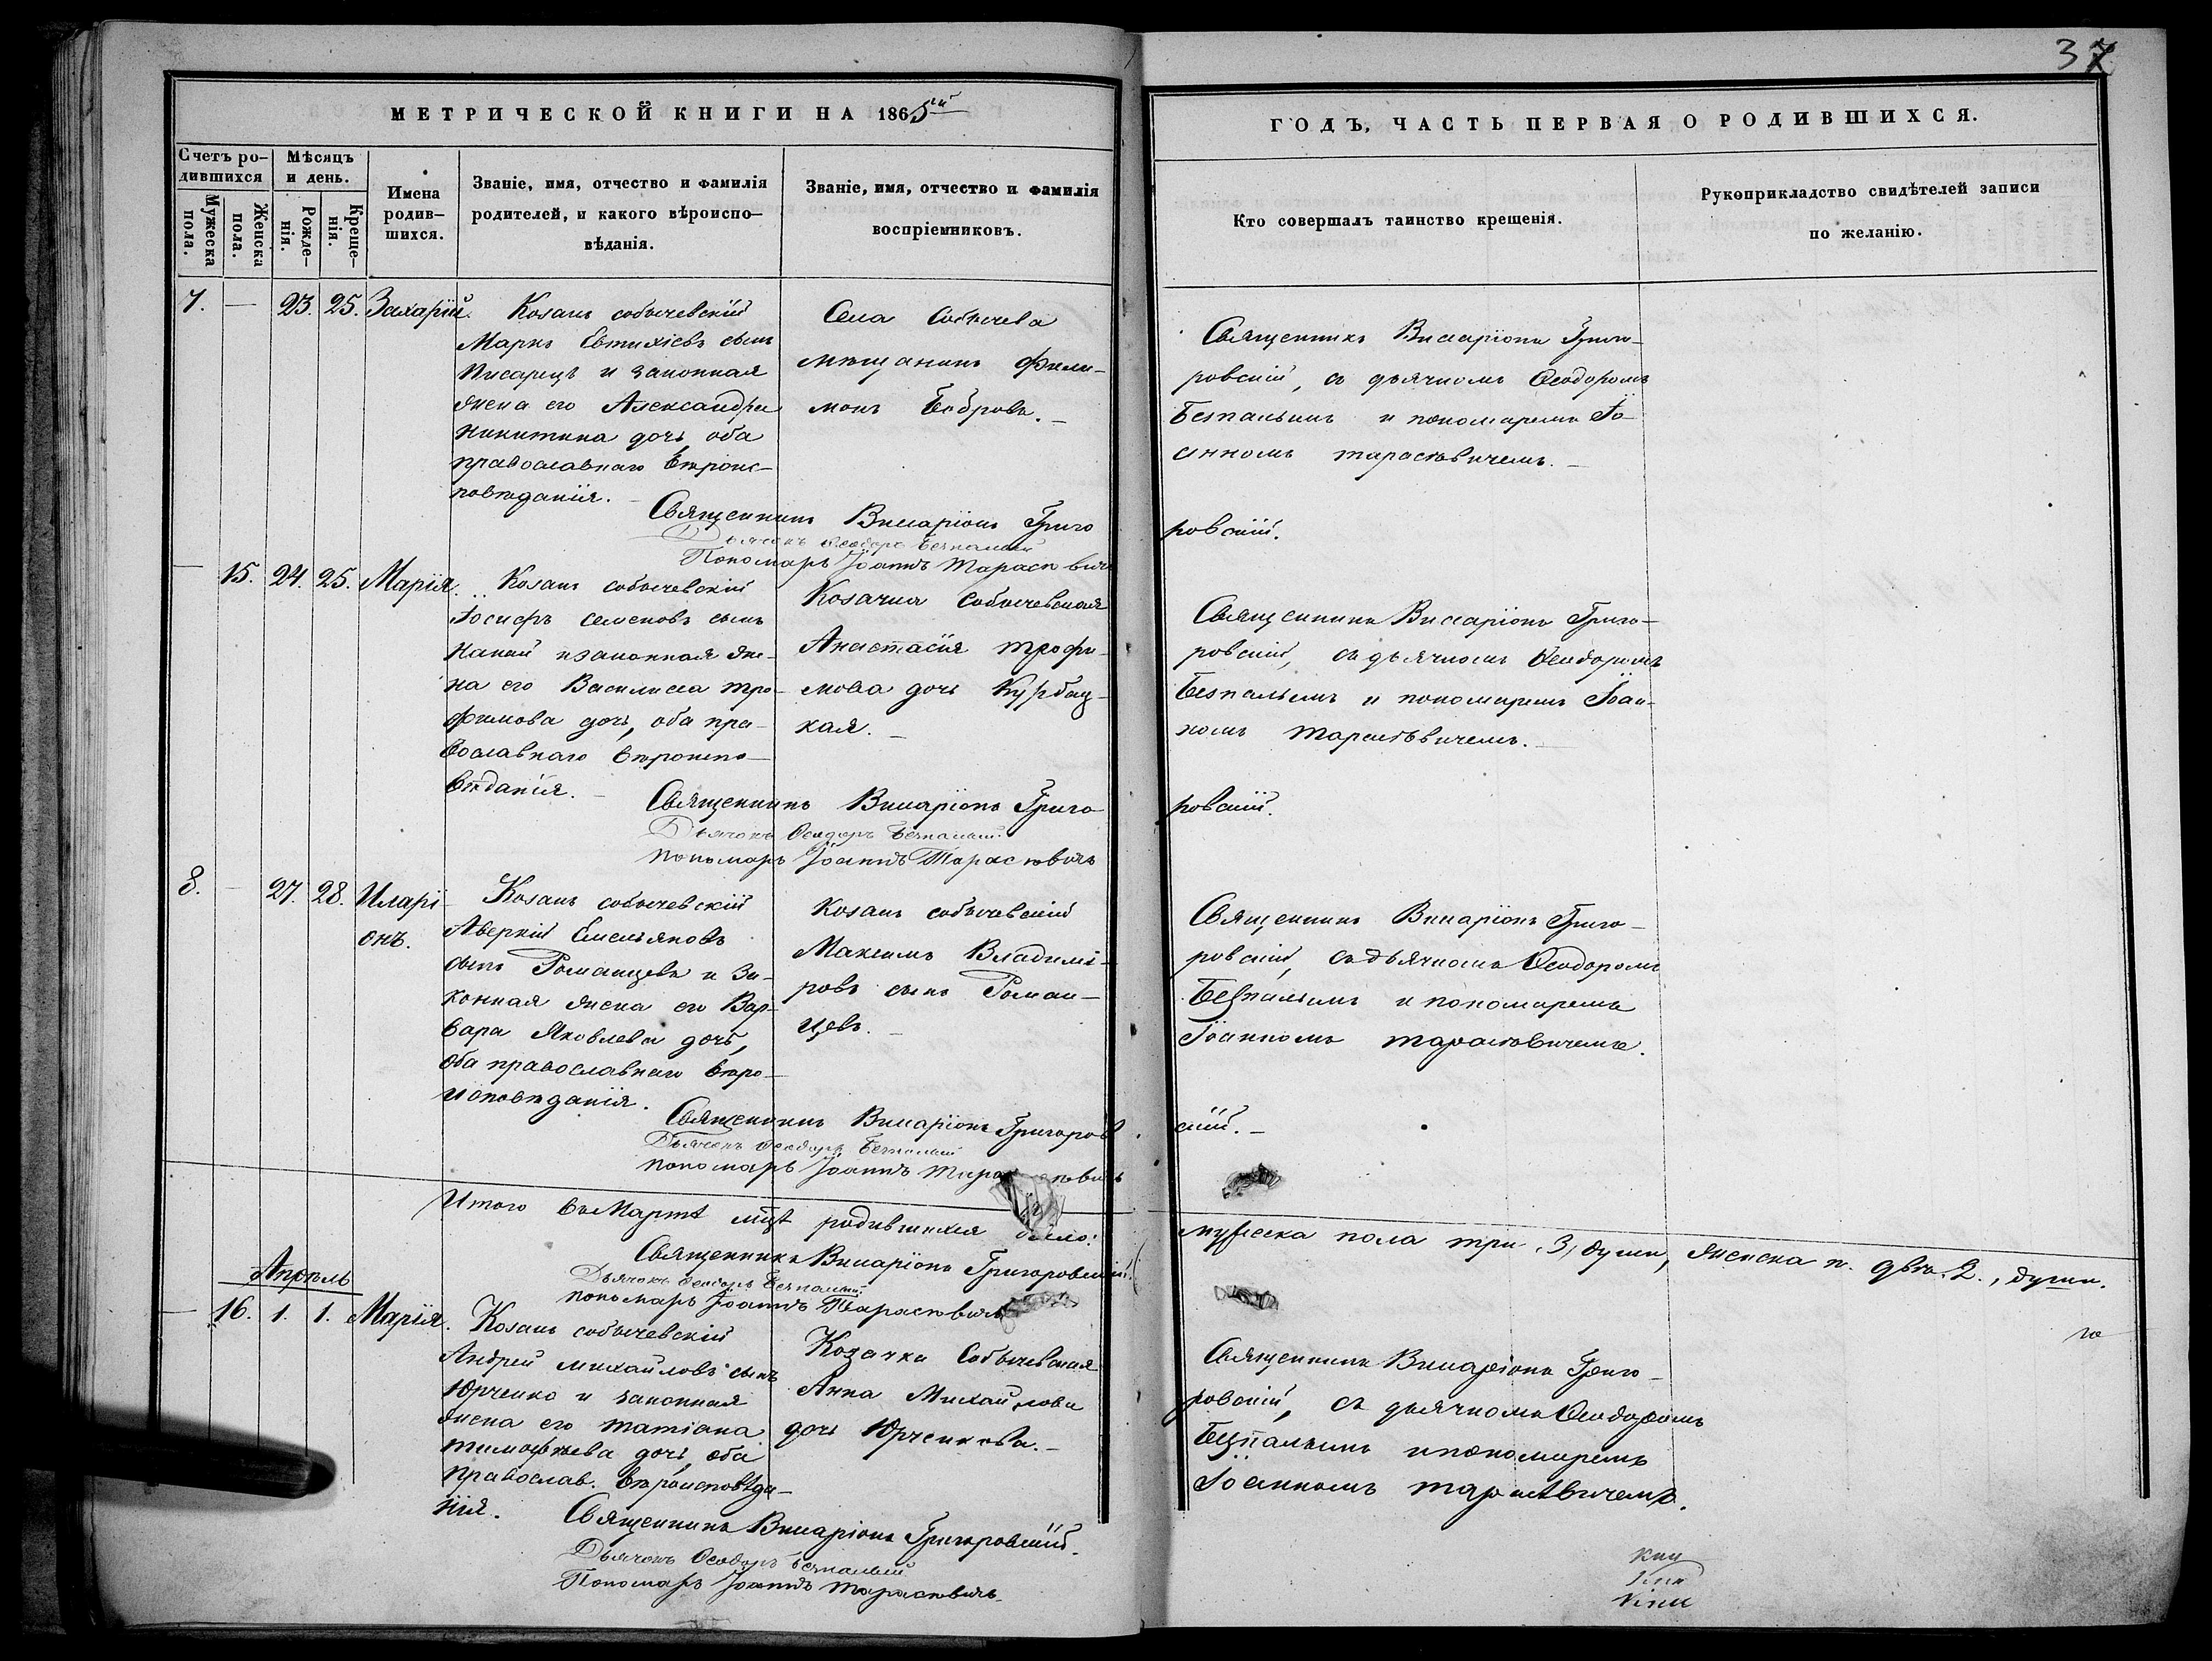 37
МЕТРИЧЕСКОЙ КНИГИ НА 1865й
ГОДЪ, ЧАСТЬ ПЕРВАЯ О РОДИВШИХСЯ.
Счетъ ро-
дившихся
Мужеска пола.
Женска пола.
Мѣсяцъ
и день.
Рожде-
нія.
Креще-
нія.
Имена
родив-
шихся.
Званіе, имя, отчество и фамилія
родителей, и какого вѣроиспо-
вѣданія.
Званіе, имя, отчество и фамилія
воспріемниковъ.
Кто совершалъ таинство крещенія.
Рукоприкладство свидѣтелей записи
по желанію.
7. — 23. 25. Захарій.
Козакъ собычевскій
Маркъ Евтихіевъ сынъ
Писарецъ и законная
жена его Александра
Никитина дочь, оба
православнаго вѣроис-
повѣданія.
Села Собычева
мѣщанинъ Фили-
монъ Бобровъ.
Священникъ Виссаріонъ Григо-
ровскій, съ дьячкомъ Ѳеодоромъ
Безпалымъ и пономаремъ Іо-
анномъ Тарасѣвичемъ.
Священникъ Виссаріонъ Григо
ровскій.
Дьячокъ Ѳеодоръ Безпалый
Пономарь Іоаннъ Тарасѣвичъ
— 15. 24. 25. Марія.
Козакъ собычевскій
Іосифъ Семеновъ сынъ
и законная же-
на его Василисса Тро-
фимова дочь, оба пра-
вославнаго вѣроиспо-
вѣданія.
Козачка Собычевская
Анастасія Трофи-
мова дочь Курбац-
кая.
Священникъ Виссаріонъ Григо-
ровскій, съ дьячкомъ Ѳеодоромъ
Безпалымъ и пономаремъ Іоан-
номъ Тарасѣвичемъ.
Священникъ Виссаріонъ Григо
ровскій.
Дьячокъ Ѳеодоръ Безпалый
пономарь Іоаннъ Тарасѣвичъ
8. — 27. 28. Иларі-
онъ.
Козакъ собычевскій
Аверкій Емельяновъ
сынъ Романцевъ и за-
конная жена его Вар-
вара Яковлева дочь,
оба православнаго вѣро-
исповѣданія.
Козакъ собычевскій
Максимъ Владимі-
ровъ сынъ Роман-
цевъ.
Священникъ Виссаріонъ Григо-
ровскій, съ дьячкомъ Ѳеодоромъ
Безпалымъ и пономаремъ
Іоанномъ Тарасѣвичемъ.
Священникъ Виссаріонъ Григоров
скій.
Дьячокъ Ѳеодоръ Безпалый
пономарь Іоаннъ Тарасѣвичъ
Итого въ Мартѣ мцѣ родившихся было: мужеска пола три, 3, души, женска п. двѣ, 2, души.
Священникъ Виссаріонъ Григоровскій.
Дьячокъ Ѳеодоръ Безпалый
пономарь Іоаннъ Тарасѣвичъ
Апрѣль
— 16. 1. 1. Марія.
Козакъ собычевскій
Андрей Михайловъ сынъ
Юрченко и законная
жена его Татіана
Тимофѣева дочь, оба
православ. вѣроисповѣда-
нія.
Козачка Собычевская
Анна Михайлова
дочь Юрченкова.
Священникъ Виссаріонъ Григо-
ровскій, съ дьячкомъ Ѳеодоромъ
Безпалымъ и пономаремъ
Іоанномъ Тарасѣвичемъ.
Священникъ Виссаріонъ Григоровскій.
Дьячокъ Ѳеодоръ Безпалый
Пономарь Іоаннъ Тарасѣвичъ